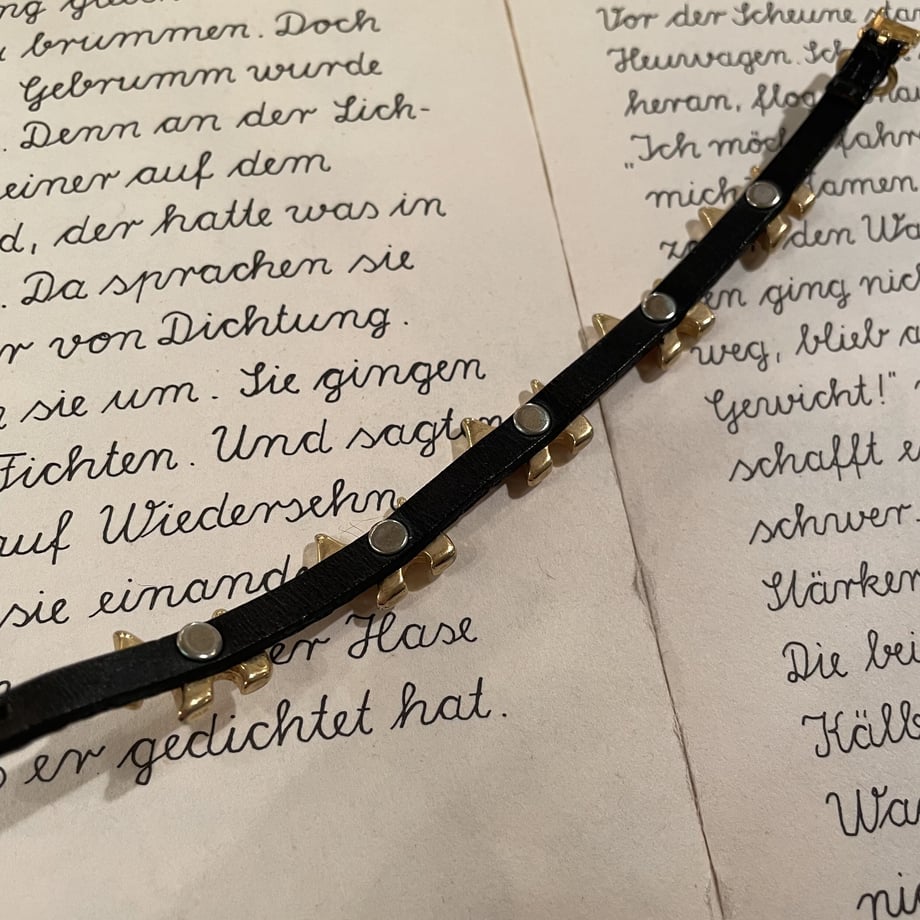 brummen. Doch
Gebrumm wurde
. Denn an der Lich-
einer auf dem
d, der hatte was in
. Da sprachen sie
r von Dichtung.
sie um. Sie gingen
Fichten. Und sagten
auf Wiedersehn
sie einand
er Hase
er gedichtet hat.
Vor der Scheune stan
Heuwagen. Sch
heran, flog
"Ich möch fahr
mich kamen
den Wa
en ging nich
weg, blieb
Gewicht!"
schafft e
schwer.
Stärker
Die bei
Kälb
Wa
ni